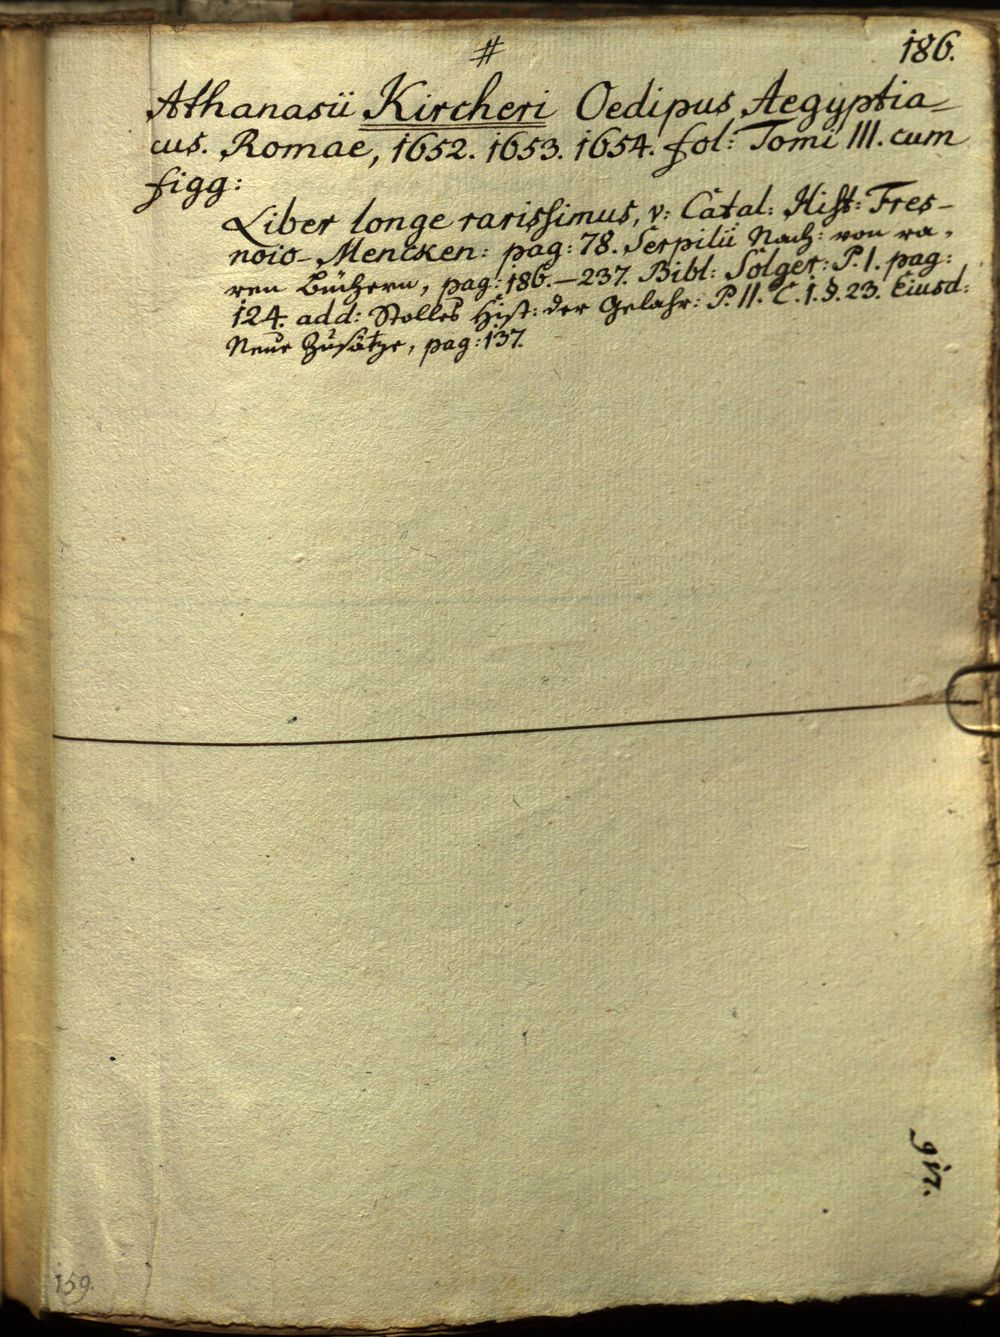 #
186.
Athanasii Kircheri Oedipus Aegyptia-
cus. Romae, 1652. 1653. 1654. fol: Tomi III. cum
figg:
Liber longe rarissimus, v: Catal: Hist: Fres-
noio-Mencken: pag: 78. Serpilii Nach: von ra-
ren Büchern, pag: 186.—237. Bibl: Solger: P. I. pag:
124. add: Stolles Hist: der Gelahr: P. II. C. 1. §. 23. Eiusd:
Neue Zusätze, pag: 137.
159.